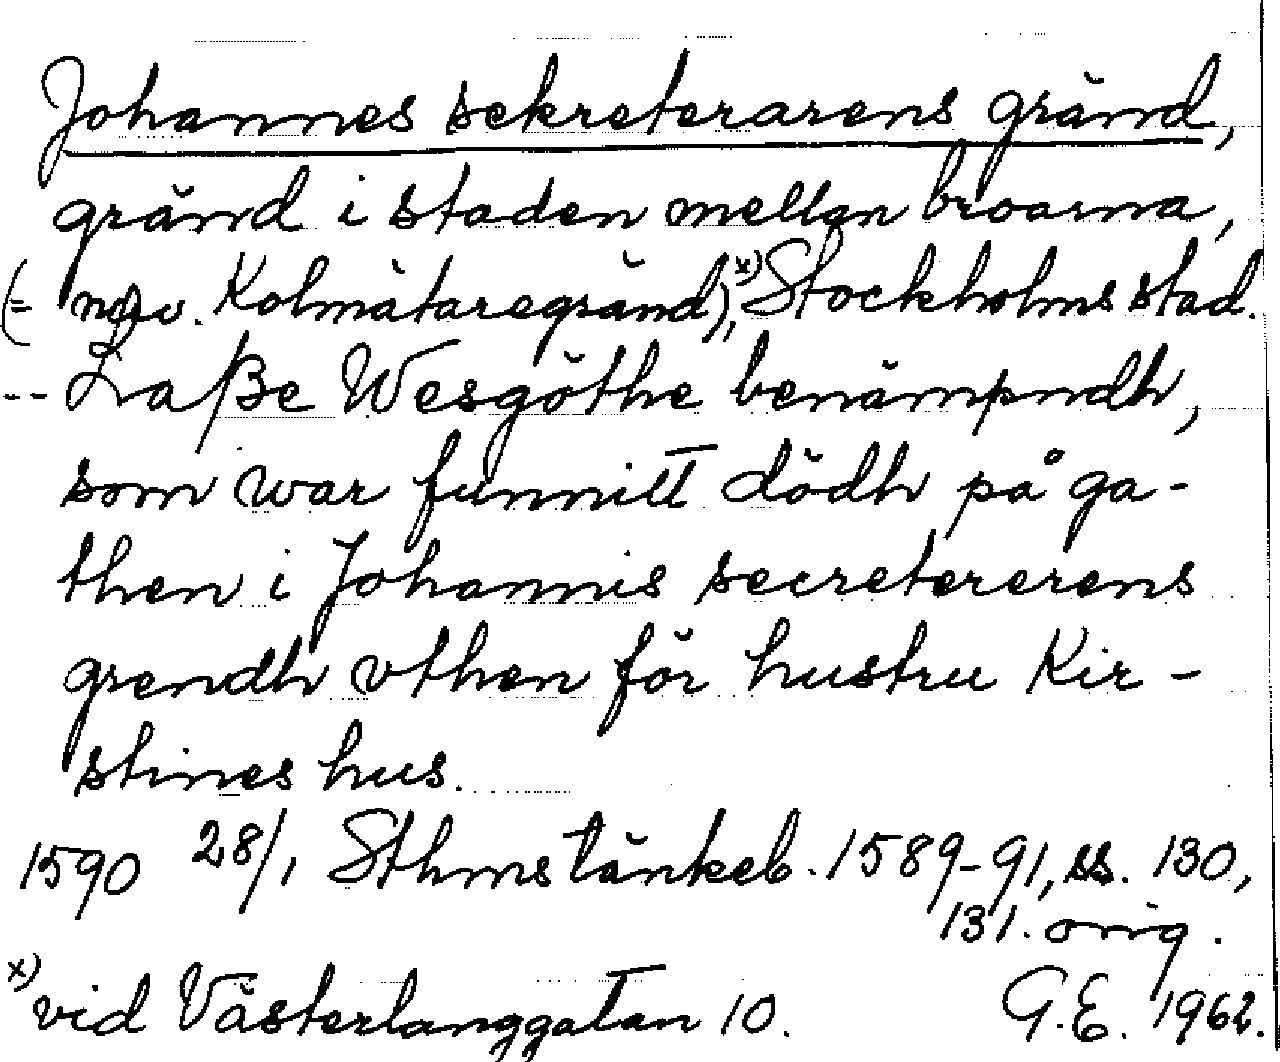 Johannes sekreterarens gränd,
gränd i staden mellan broarna,
(= nuv. Kolmätaregränd),x) Stockholms stad.
-- Laße Wesgöthe benämpndh,
som war funnitt dödh på ga-
then i Johannis secretererens
grendh vthen för hustru Kir-
stines hus.
1590 28/1 Sthms tänkeb. 1589-91, ss. 130,
131. orig.
x) vid Västerlanggatan 10. G.E. 1962.